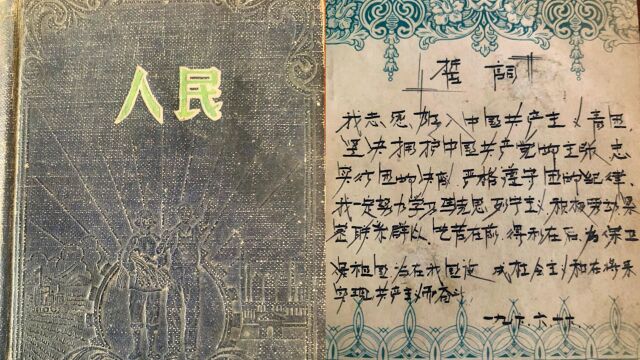 人民
誓词
我志愿加入中国共产主义青团
坚决拥护中国共产党的主张 忠
实行团的决议 严格遵守团的纪律
我一定努力学习马克思列宁主义 积极劳动
密联系群众 吃苦在前 得利在后 为保卫
祖国 为在我国建成社会主义和在将来
实现共产主义而奋斗